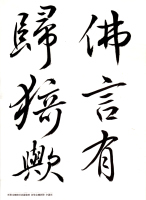 佛言有
歸猗歟